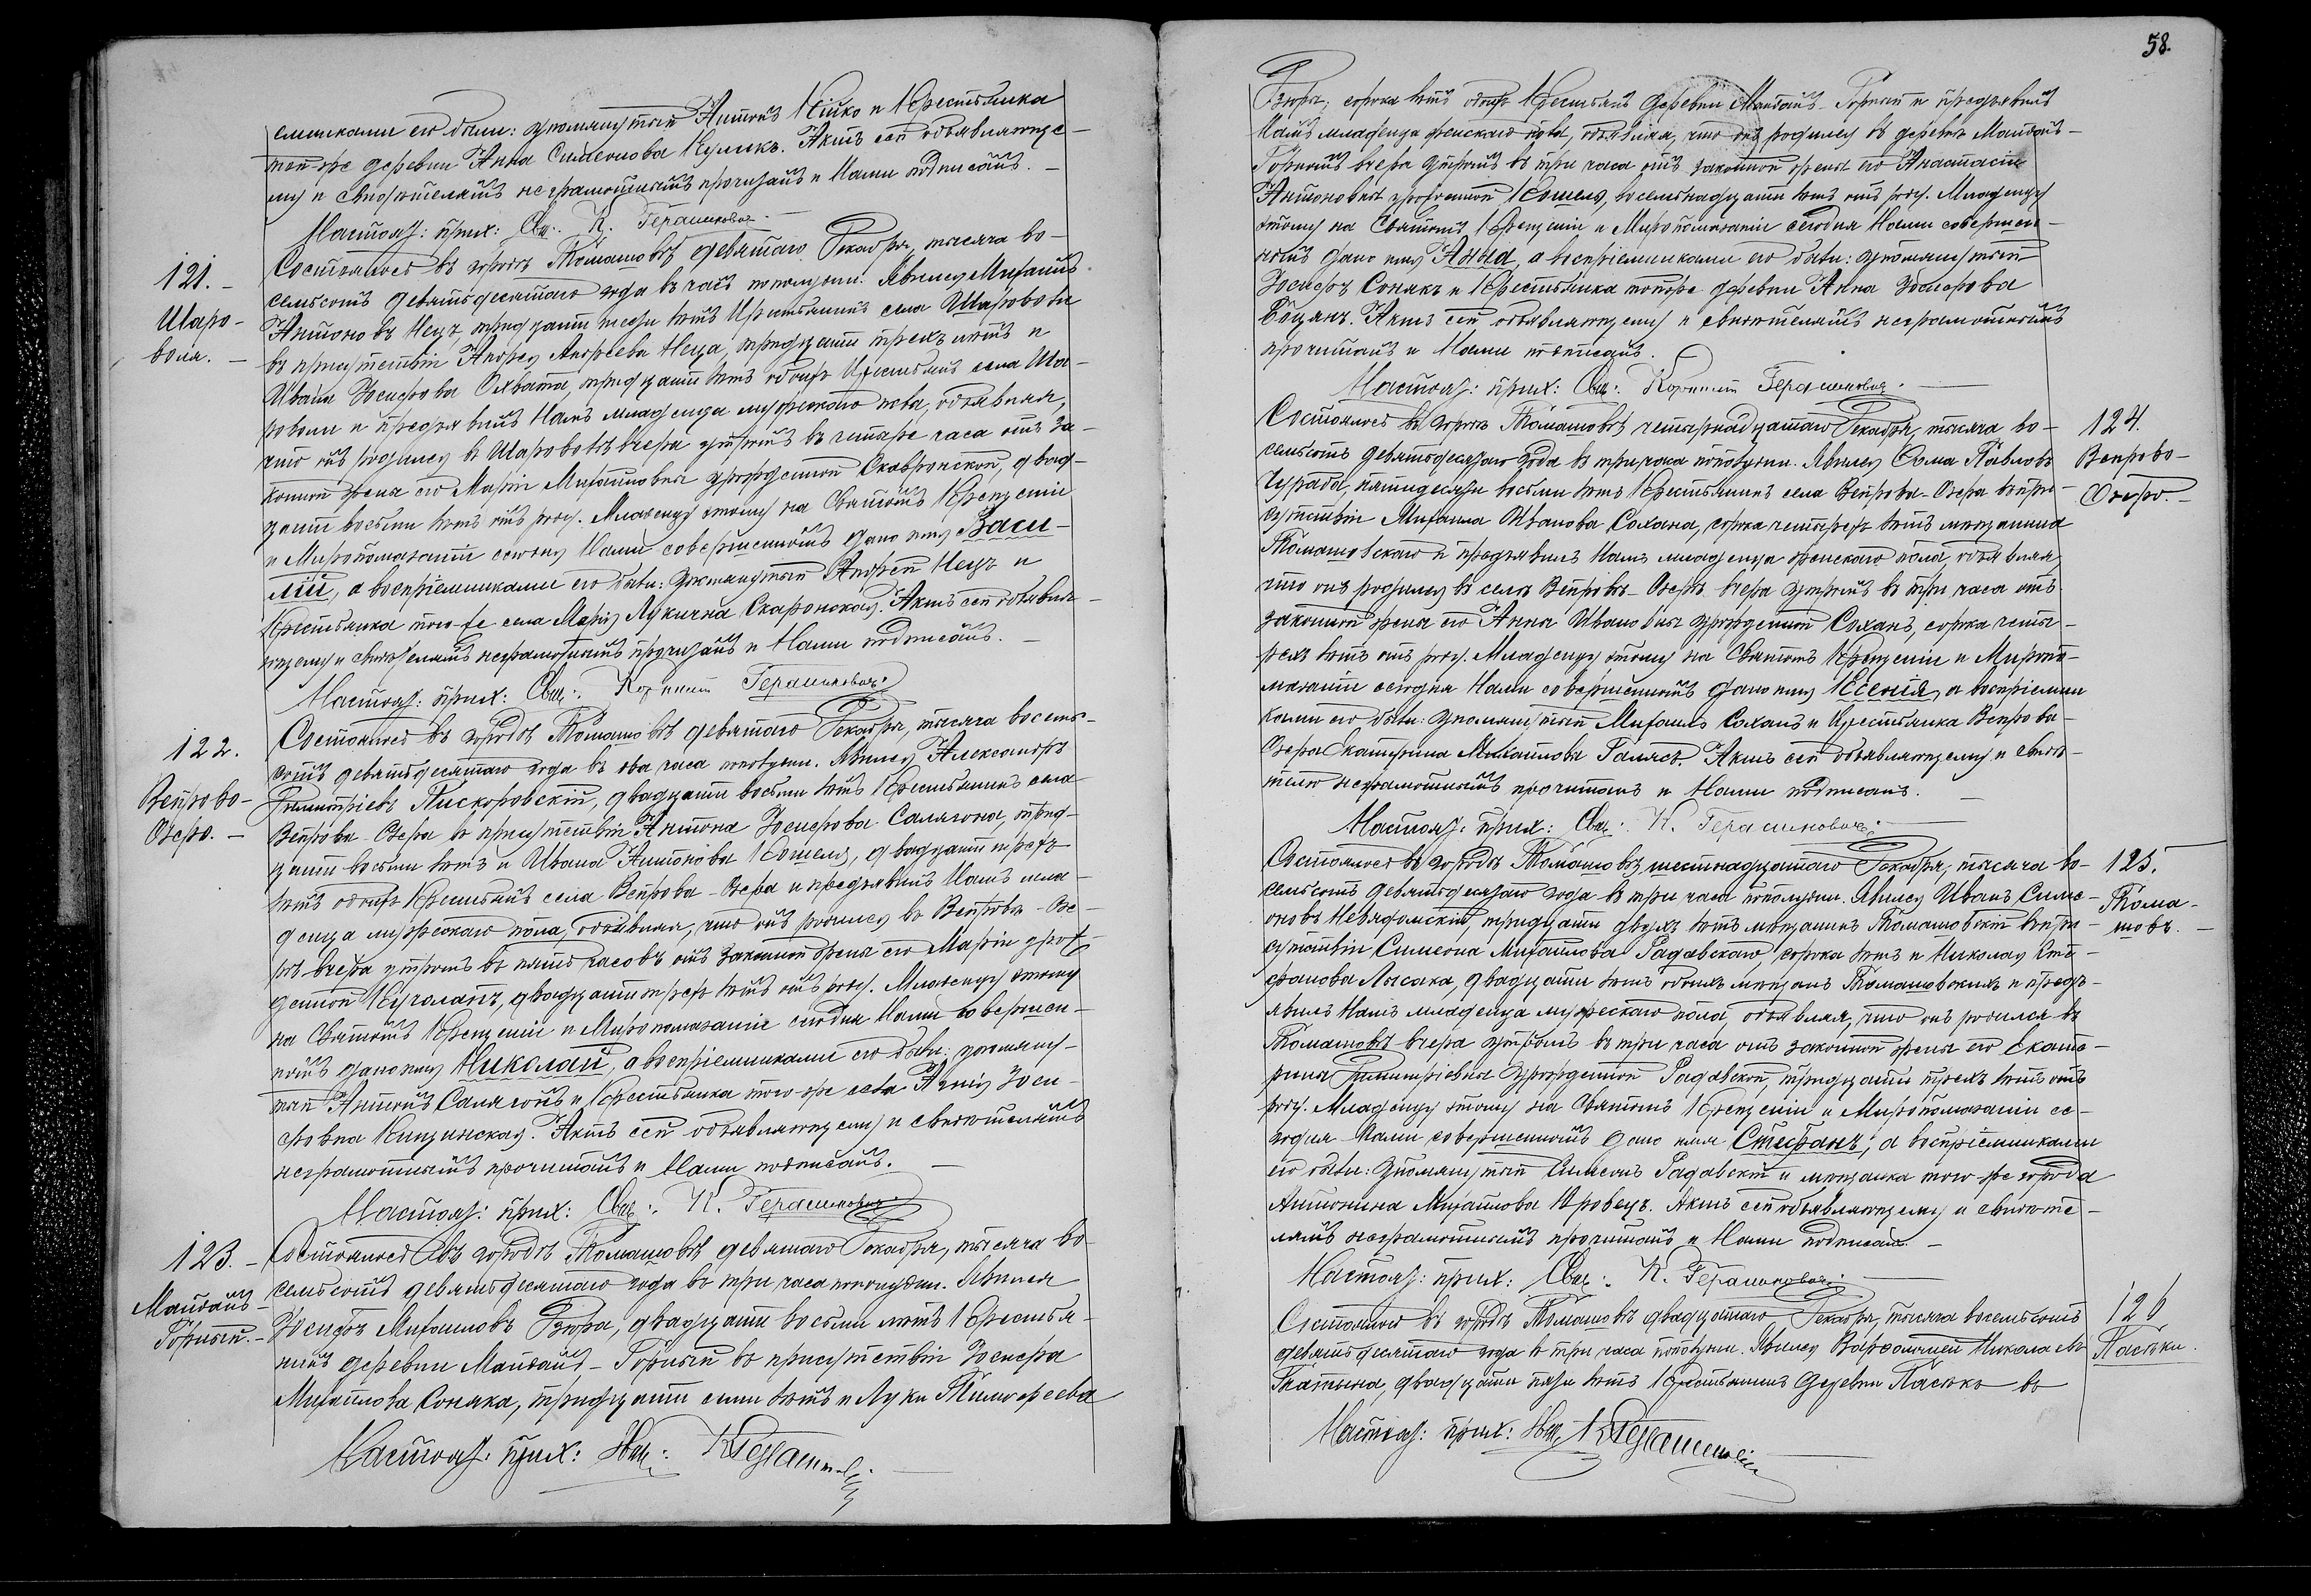 емниками его были: упомянутый Антонъ Кійко и Крестьянка
той же деревни Анна Симеонова Куликъ. Актъ сей объявляюще-
му и свидѣтелямъ неграмотнымъ прочитанъ и Нами подписанъ.
Настоят: прих: Свщ: К. Герашковов
121. Шаро-воля.
Состоялось въ городѣ Томашовѣ девятаго Декабря, тысяча во-
семьсотъ девятьдесятаго года въ часъ пополудни. Явился Михаилъ
Антоновъ Нецъ, тридцати лѣтъ Крестьянинъ села Шароволи
въ присутствіи Андрея Андреева Неца, тридцати трехъ лѣтъ и
Ивана Іосифова Охвата, тридцати лѣтъ обоихъ Крестьянъ села Ша-
роволи и предъявилъ Намъ младенца мужескаго пола, объявляя,
что онъ родился въ Шароволѣ вчера утромъ въ четыре часа отъ за-
конной жены его Маріи Михайловны урожденной Скавронской, двад-
цати восьми лѣтъ отъ роду. Младенцу этому на Святомъ Крещеніи
и Миропомазаніи сегодня Нами совершенномъ дано имя Васи-
лій, а воспріемниками его были: упомянутый Андрей Нецъ и
Крестьянка того-же села Марія Лукична Скаронская. Актъ сей объявля-
ющему и свидѣтелямъ неграмотнымъ прочитанъ и Нами подписанъ.
Настоят: прих: Свщ:
122. Вепрово-Озеро.
Состоялось въ городѣ Томашовѣ девятаго Декабря, тысяча восемь-
сотъ девятьдесятаго года въ два часа пополудни. Явился Александръ
Димитріевъ Пискоровскій, двадцати восьми лѣтъ Крестьянинъ села
Вепрова-Озера въ присутствіи Антона Іосифова Салягона, трид-
цати восьми лѣтъ и Ивана Антонова Кошеля, двадцати трехъ
лѣтъ обоихъ Крестьянъ села Вепрова-Озера и предъявилъ Намъ мла-
денца мужескаго пола, объявляя, что онъ родился въ Вепровѣ-Озе-
рѣ вчера утромъ въ пять часовъ отъ законной жены его Маріи урож-
денной двадцати трехъ лѣтъ отъ роду. Младенцу этому
на Святомъ Крещеніи и Миропомазаніи сегодня Нами совершен-
номъ дано имя Николай, а воспріемниками его были: упомяну-
тый Антонъ Салягонъ и Крестьянка того-же села Іоси-
фовна Кицинская. Актъ сей объявляющему и свидѣтелямъ
неграмотнымъ прочитанъ и Нами подписанъ.
Настоят: прих: Свщ: К.
123. Майданъ-Горный.
Состоялось въ городѣ Томашовѣ девятаго Декабря, тысяча во-
семьсотъ девятьдесятаго года въ три часа пополудни. Явился
Іосифъ Михаиловъ Дзюра, двадцати восьми лѣтъ Крестья-
нинъ деревни Майданъ-Горный въ присутствіи Іосифа
Михайлова Соняка, тридцати семи лѣтъ и Луки Тимофеева
Настоят: прих: Свщ:
58.
Дзюры, сорока лѣтъ обоихъ Крестьянъ деревни Майданъ-Горный и предъявилъ
Намъ младенца женскаго пола, объявляя, что онъ родился въ деревнѣ Майданъ-
Горномъ вчера утромъ въ три часа отъ законной жены его Анастасіи
Антоновны урожденной Кошель, восемнадцати лѣтъ отъ роду. Младенцу
этому на Святомъ Крещеніи и Миропомазаніи сегодня Нами совершен-
номъ дано имя Анна, а воспріемниками его были: упомянутый
Іосифъ Сонякъ и Крестьянка той-же деревни Анна Іосифова
Боцянъ. Актъ сей объявляющему и свидѣтелямъ неграмотнымъ
прочитанъ и Нами подписанъ.
Настоят: прих: Свщ:
124. Вепрово-Озеро.
Состоялось въ городѣ Томашовѣ четырнадцатаго Декабря, тысяча во-
семьсотъ девятьдесятаго года въ три часа пополудни. Явился Ѳома Павловъ
Чурада, пятидесяти восьми лѣтъ Крестьянинъ села Вепрова-Озера въ при-
сутствіи Михаила Иванова Сохана, сорока четырехъ лѣтъ мѣщанина
Томашовскаго и предъявилъ Намъ младенца женскаго пола, объявляя,
что онъ родился въ селѣ Вепровѣ-Озерѣ вчера утромъ въ три часа отъ
законной жены его Анны Ивановны урожденной Соханъ, сорока четы-
рехъ лѣтъ отъ роду. Младенцу этому на Святомъ Крещеніи и Миропо-
мазаніи сегодня Нами совершенномъ дано имя Ксенія, а воспріемни
ками его были: упомянутый Михаилъ Соханъ и Крестьянка Вепрова-
Озера Екатерина Михайлова Галясъ. Актъ сей объявляющему и свидѣ-
телю неграмотнымъ прочитанъ и Нами подписанъ.
Настоят: прих: Свщ: К.
125. Тома-шовъ.
Состоялось въ городѣ Томашовѣ шестнадцатаго Декабря, тысяча во-
семьсотъ девятьдесятаго года въ три часа пополудни. Явился Иванъ Симе-
оновъ Невядомскій, тридцати двухъ лѣтъ мѣщанинъ Томашовскій въ при-
сутствіи Симеона Михайлова Радавскаго, сорока лѣтъ и Николая Сте-
фанова Лысака, двадцати лѣтъ обоихъ мѣщанъ Томашовскихъ и предъ-
явилъ Намъ младенца мужескаго пола, объявляя, что онъ родился въ
Томашовѣ вчера утромъ въ три часа отъ законной жены его Екате-
рины Димитріевны урожденной Радавской, тридцати трехъ лѣтъ отъ
роду. Младенцу этому на Святомъ Крещеніи и Миропомазаніи се-
годня Нами совершенномъ дано имя Стефанъ, а воспріемниками
его были: упомянутый Симеонъ Радавскій и мѣщанка того-же города
Антонина Михайлова Кровецъ. Актъ сей объявляющему и свидѣте-
лямъ неграмотнымъ прочитанъ и Нами подписанъ.
Настоят: прих: Свщ: К.
126 Пасѣки.
Состоялось въ городѣ Томашовѣ двадцатаго Декабря, тысяча восемьсотъ
девятьдесятаго года въ три часа пополудни. Явился Варѳоломей Николаевъ
двадцати пяти лѣтъ Крестьянинъ деревни Пасѣкъ въ
Настоят: прих: Свщ: